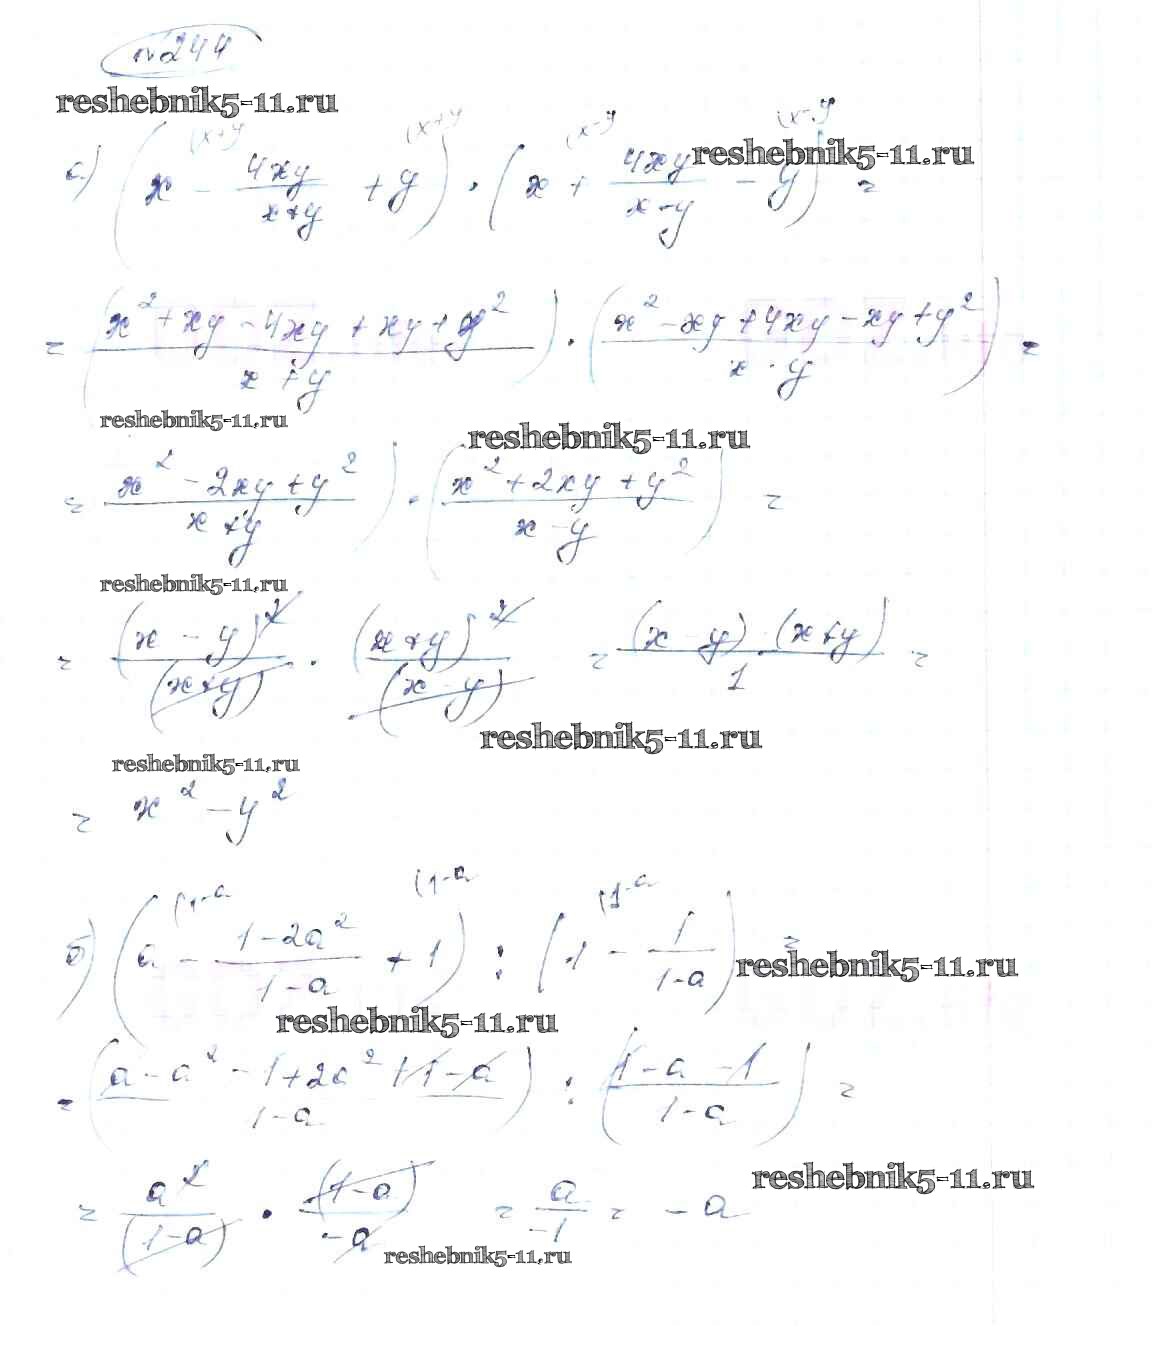 №244
reshebnik5-11.ru
(x+y (x+y (x-y (x-y
а) (x - 4xy/x+y + y) · (x + 4xy/x-y - y) =
reshebnik5-11.ru
= (x² + xy - 4xy + xy + y²/x+y) · (x² - xy + 4xy - xy + y²/x-y) =
reshebnik5-11.ru
reshebnik5-11.ru
= x² - 2xy + y²/x+y) · (x² + 2xy + y²/x-y) =
reshebnik5-11.ru
= (x - y)²/(x+y) · (x+y)²/(x-y) = (x-y) · (x+y)/1 =
reshebnik5-11.ru
reshebnik5-11.ru
= x² - y²
(1-a (1-a (1-a
б) (a - 1-2a²/1-a + 1) : (1 - 1/1-a) =
reshebnik5-11.ru
reshebnik5-11.ru
= (a - a² - 1 + 2a² + 1 - a/1-a) : (1-a-1/1-a) =
reshebnik5-11.ru
= a²/(1-a) · (1-a)/-a = a/-1 = -a
reshebnik5-11.ru